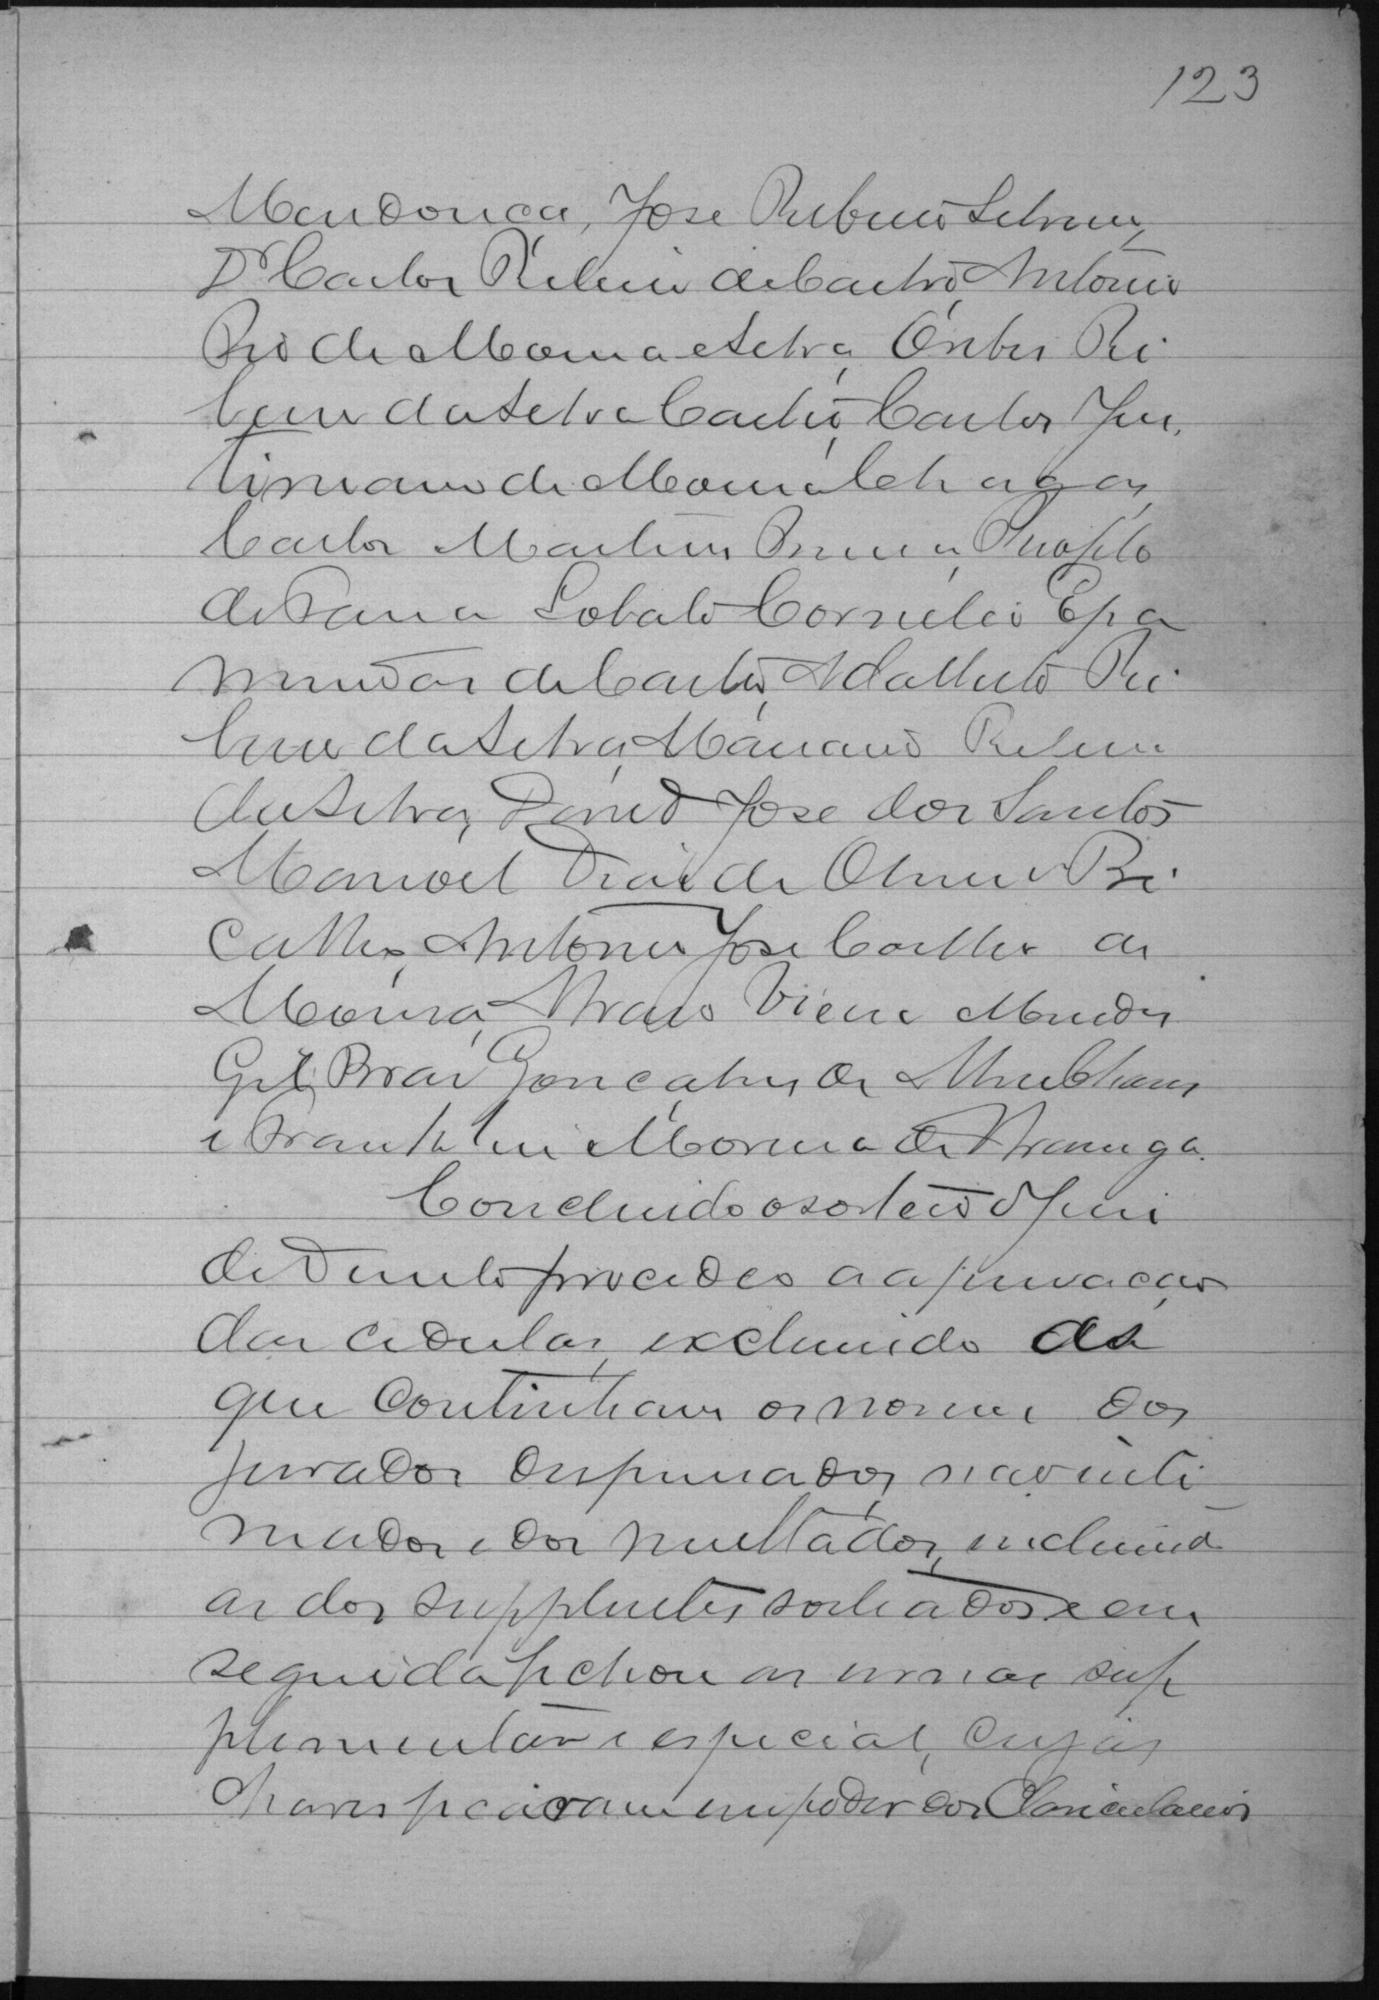 123
Mendonça, Jose Ribeiro
Dr Carlos Ribeiro de Castro, Antonio
Pio de Moura e Silva, Ri
beiro da Silva Castro, Carlos Jus
tiniano de Moura Chagas,
Carlos Martins Theofilo
de Faria Lobato Cornelio Epa
minondas de Castro, Adalberto Ri
beiro da Silva, Mariano Ribeiro
da Silva, David Jose dos Santos
Manoel Dias de Oliveira Bi
calho, Antonio Jose Coelho de
Moura, Vieira Mendes
Gil, Braz Gonçalves de
e Franklin Moreira de
Concluido o sorteio o Juiz
de Direito procedeo a apuração
das cedulas, excluindo as
que continham os nomes dos
jurados dispensados, não inti
mados e dos multados, incluindo
as dos supplentes sorteados e em
seguida fechou as urnas sup
plementar e especial, cujas
chaves ficaram em poder dos Clavicularios